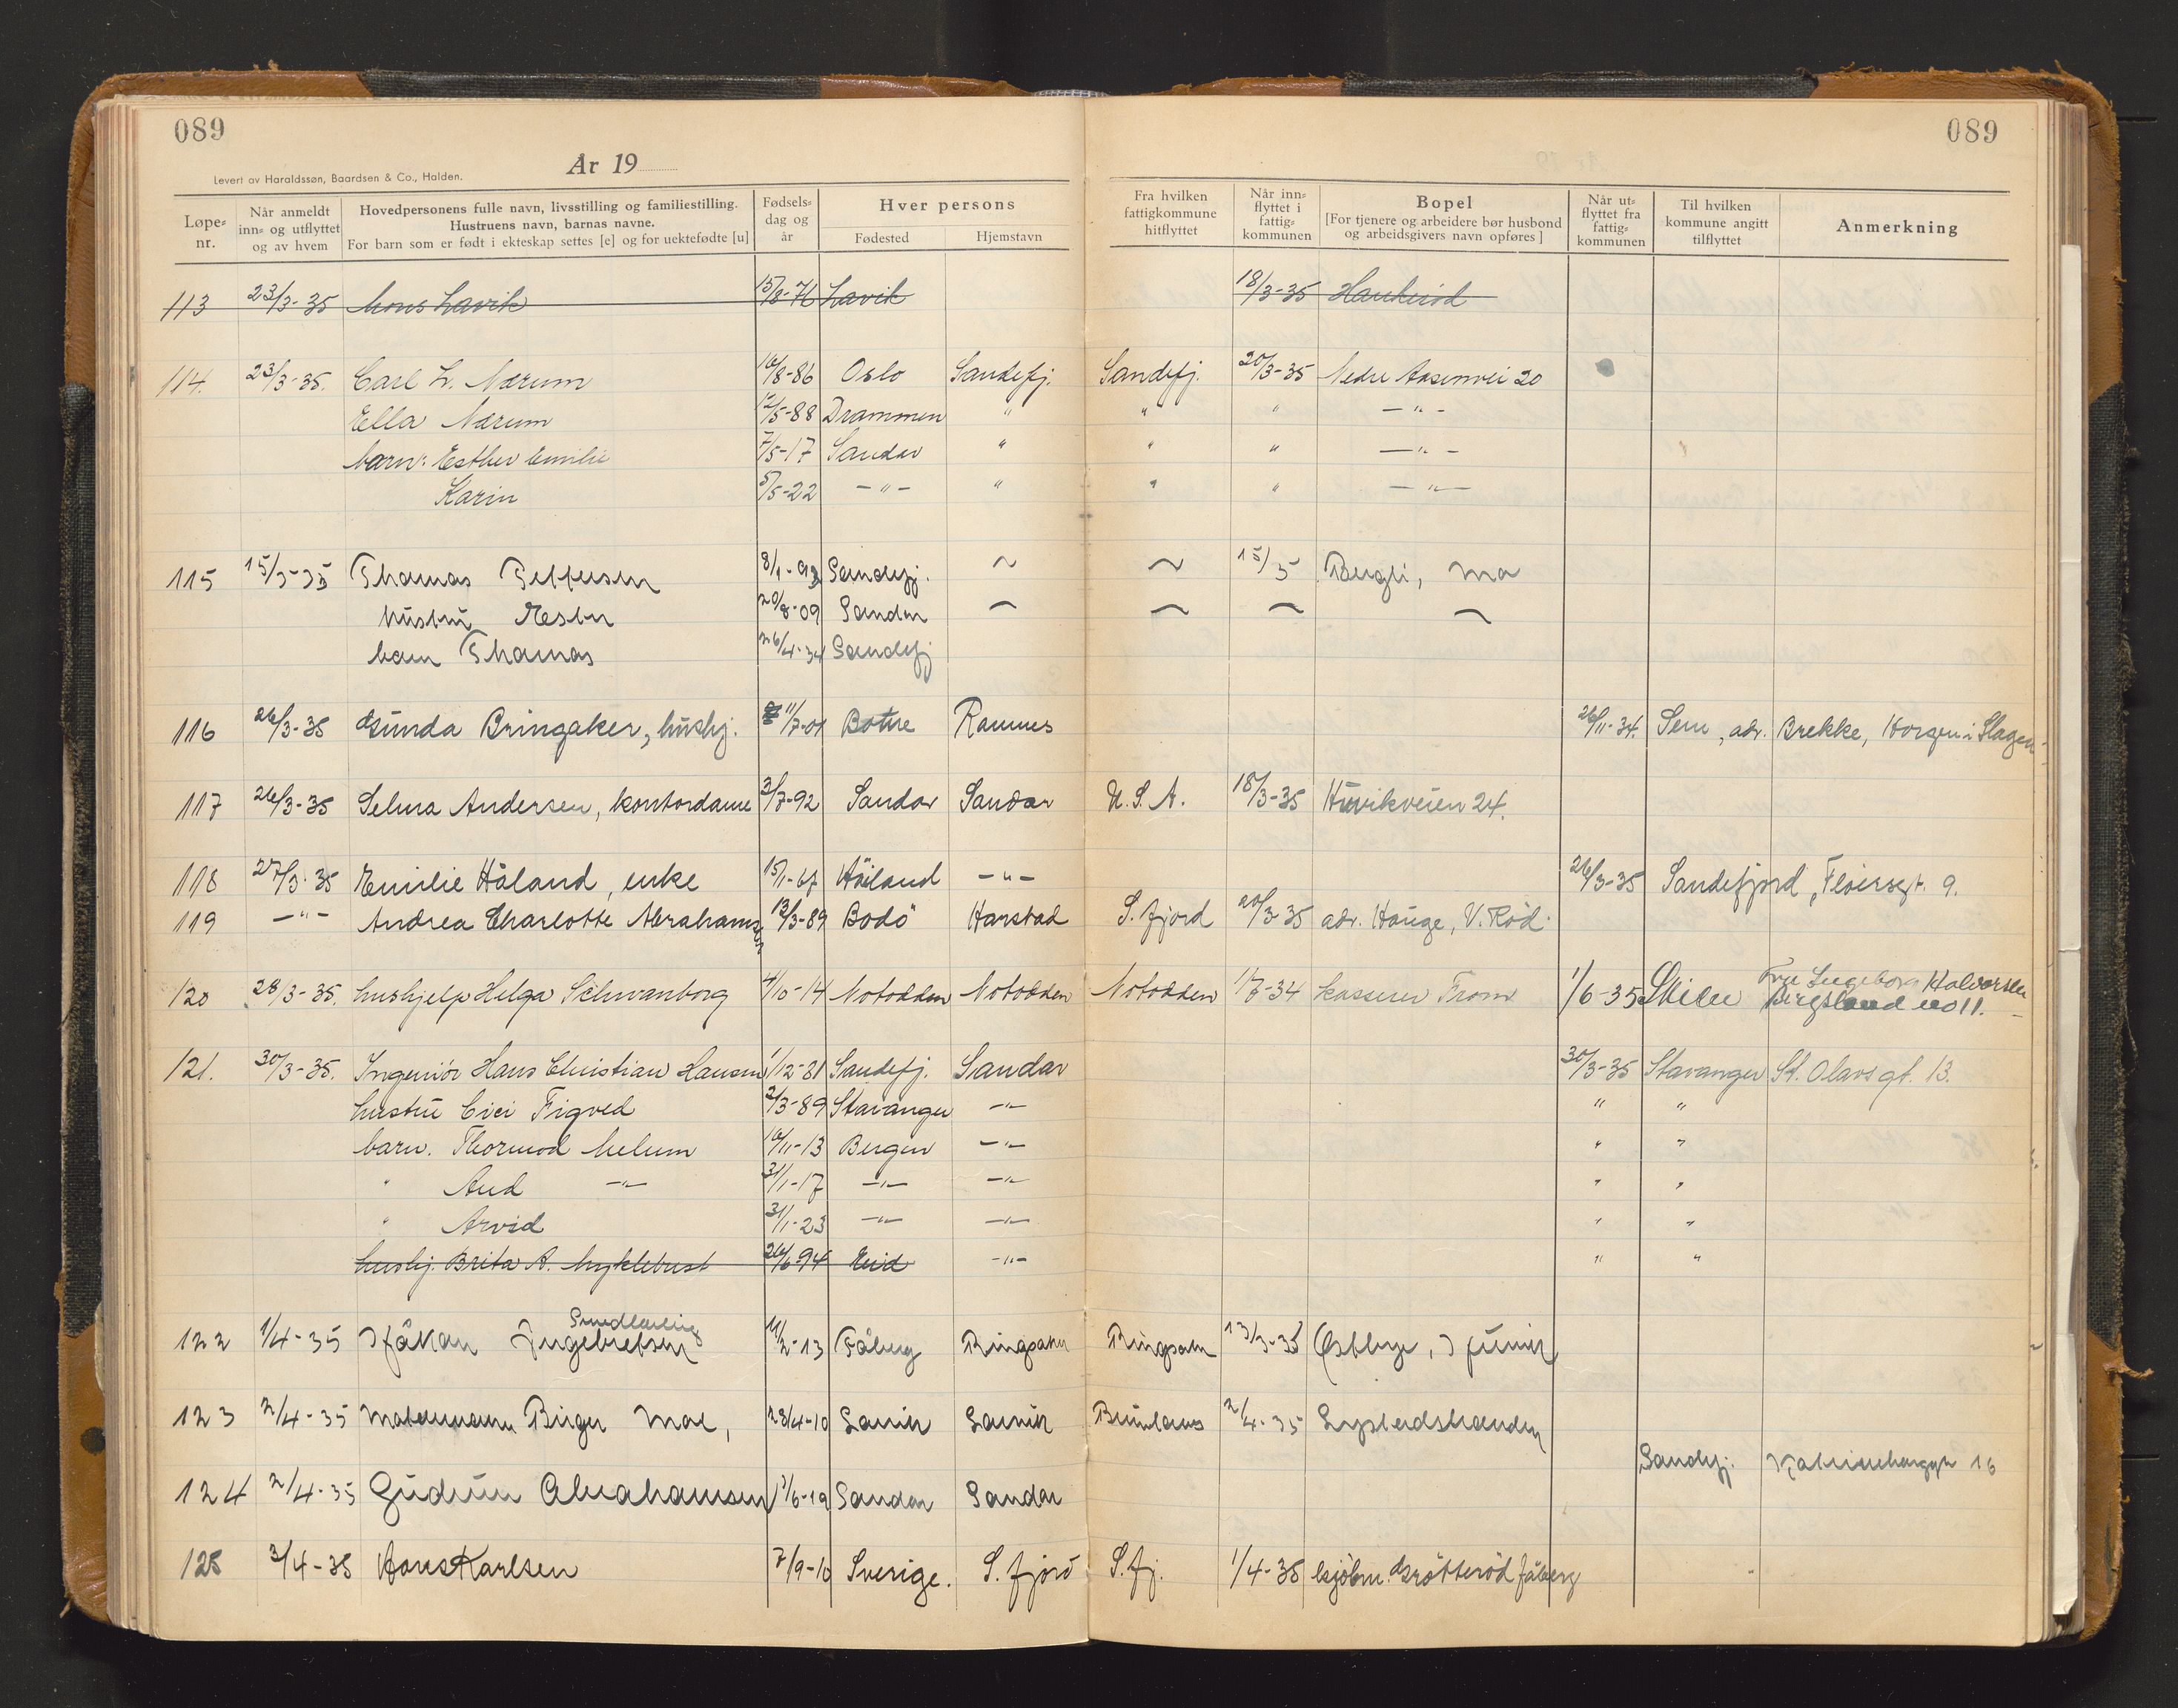 089
089
År 19
Levert av Haraldssøn, Baardsen & Co., Halden.
Løpe-nr. Når anmeldt inn- og utflyttet og av hvem Hovedpersonens fulle navn, livsstilling og familiestilling. Hustruens navn, barnas navne. For barn som er født i ekteskap settes [e] og for uektefødte [u] Fødsels-dag og år Hver persons Fødested Hjemstavn Fra hvilken fattigkommune hitflyttet Når inn-flyttet i fattig-kommunen Bopel [For tjenere og arbeidere bør husbond og arbeidsgivers navn opføres] Når ut-flyttet fra fattig-kommunen Til hvilken kommune angitt tilflyttet Anmerkning
113 23/3-35 Mons Lavik 15/8-76 Lavik 18/3-35 Haukerød
114. 23/3-35. Carl L. Nærum 16/8-86 Oslo Sandefj. Sandefj. 20/3-35 Nedre Aasenvei 20
Ella Nærum 12/5-88 Drammen " " " -"-
barn: Esther Emilie 7/5-17 Sandar " " " -"-
Karin 5/5-22 -"- " " " -"-
115 15/3-35 Thomas Pettersen Sandefj. ~ ~ 15/3 Bugli, Mo
hustru Ester 20/8-09 Sandar ~ ~ ~ ~
barn Thomas 26/4-34 Sandefj
116 26/3-35 Gunda Bringaker, hushj. 11/7-01 Botne Ramnes 26/11-34. Sem, adr. Brekke, Horgen i Slagen
117 26/3-35 Selma Andersen, kontordame 3/7-92 Sandar Sandar U.S.A. 18/3-35 Huvikveien 24.
118 27/3-35 Emilie Håland, enke 15/1-67 Høiland -"- 26/3-35 Sandefjord, Feiersgt. 9.
119 -"- Andrea Charlotte Abrahamsen 12/3-89 Bodö Harstad S. fjord 20/3-35 adr. Hauge, V. Rød.
120 28/3-35. hushjelp Helga Schwanborg 4/10-14 Notodden Notodden Notodden kasserer From 1/6-35 Skien Fru Ingeborg Halvorsen Bergsland no 11.
121. 30/3-35. Ingeniör Hans Christian Hansen 1/12-81 Sandefj. Sandar 30/3-35 Stavanger St. Olavs gt. 13.
hustru Cici Figved 2/3-89 Stavanger -"- " "
barn. Thormod Melum 16/11-13 Bergen -"- " "
" Aud -"- 31/1-17 -"- -"- " "
" Arvid 31/1-23 -"- -"- " "
hushj. Brita A. Myklebust 26/6-94 Eid -"- " "
Smedlærling
122 1/4-35 Håkon Ingebretsen 11/2-13 Fåberg Ringsaker Ringsaker 13/3-35 Østbye, Hunin
123 2/4-35 Matemann Birger Moe, 23/4-10 Larvik Larvik Brunlanes 2/4-35 Lystadstranden
124 2/4-35 Gudrun Abrahamsen Sandar Sandar Sandefj. 16
125 3/4-35 Hans Karlsen 7/9-10 Sverige. S. fjord S. fj. 1/4-35 Grötteröd fåberg